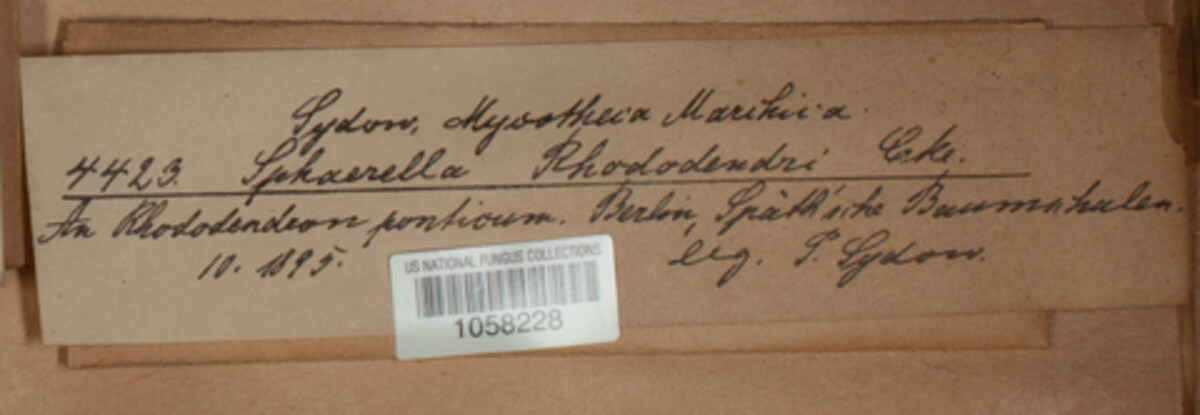 Sydow, Mycotheca Marchica.
4423. Sphaerella Rhododendri Cke.
An Rhododendron ponticum. Berlin, Späth'sche Baumschulen.
10. 1895. leg. P. Sydow.
US NATIONAL FUNGUS COLLECTIONS
1058228